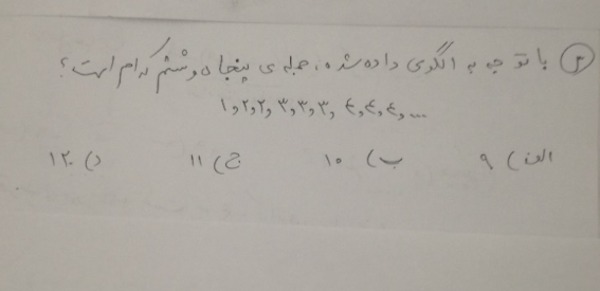 ۳) با توجه به الگوی داده شده، جمله ی پنجاه و ششم کدام است؟
۱,۲,۲,۳,۳,۳,۴,۴,۴,...
الف) ۹ ب) ۱۰ ج) ۱۱ د) ۱۲۰